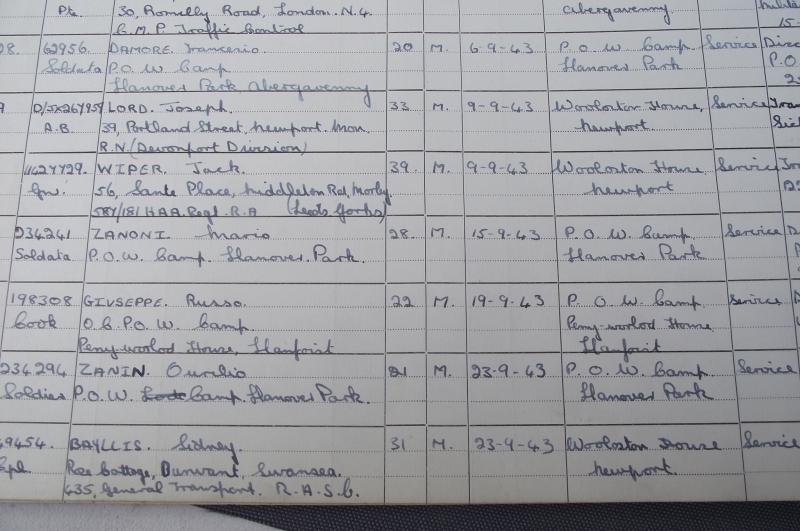 Pte. 30, Romilly Road, London. N.4. Abergavenny
C.M.P Traffic Control 15-
28. 62956. DAMORE. 20 M. 6-9-43 P. O. W Camp Service
Soldata P.O.W Camp Llanover Park P.O
Llanover Park Abergavenny
D/JX267959 LORD. Joseph. 33 M. 9-9-43 Woolaston House, Service
A.B. 39, Portland Street, Newport. Mon. Newport.
R.N. (Devonport Division)
WIPER. Jack. 39. M. 9-9-43 Woolaston House Service
Gnr. 56, Sante Place, Middleton Rd, Morley Newport
587/181 HAA.Regt. R.A (Leeds Yorks)
234241 ZANONI. Mario 28. M. 15-9-43 P. O. W. Camp Service
Soldata P.O.W. Camp, Llanover. Park. Llanover Park
198308 GIUSEPPE. Russo. 22 M. 19-9-43 P. O. W. Camp Service
Cook O.C.P.O.W. Camp. Peny-worlod House
Peny-worlod House, Llanfoist Llanfoist
234294 ZANIN. 21 M. 23-9-43 P. O. W. Camp Service
Soldier P.O.W. Camp. Llanover Park. Llanover Park
49454. BAYLLIS. Sidney. 31 M. 23-9-43 Woolaston House Service
Cpl. Rose Cottage, Dunvant, Swansea. Newport.
435, General Transport. R.A.S.C.